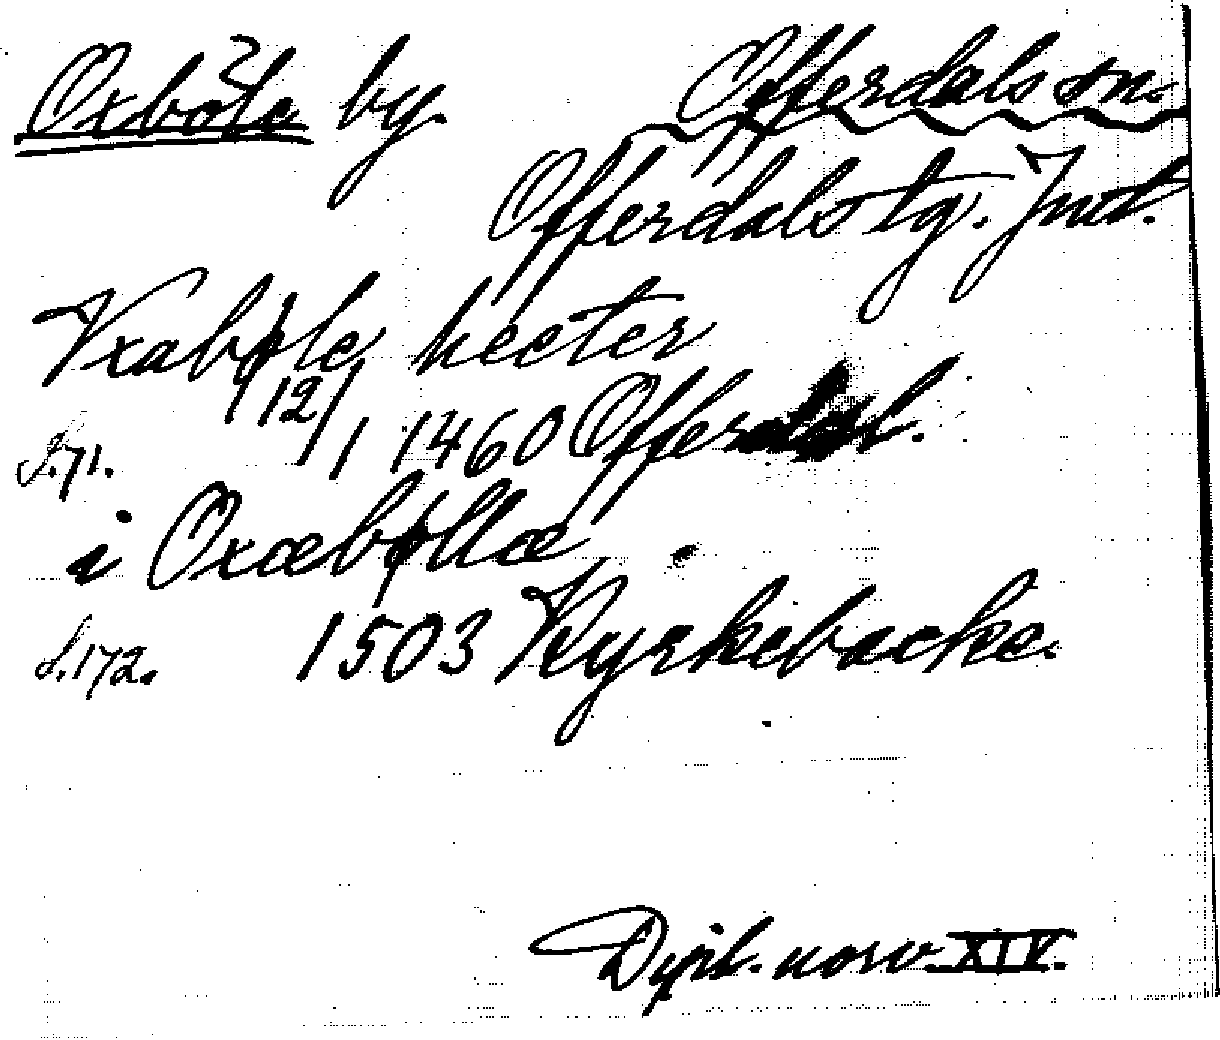 Oxböle by. Offerdals sn.
Offerdals tg. Jmt.
Vxabøle heeter
12/1 1460 Offerdal.
s.71.
i Oxæbøllæ
s.172. 1503 Kyrkebacke.
Dipl. norv. XIV.